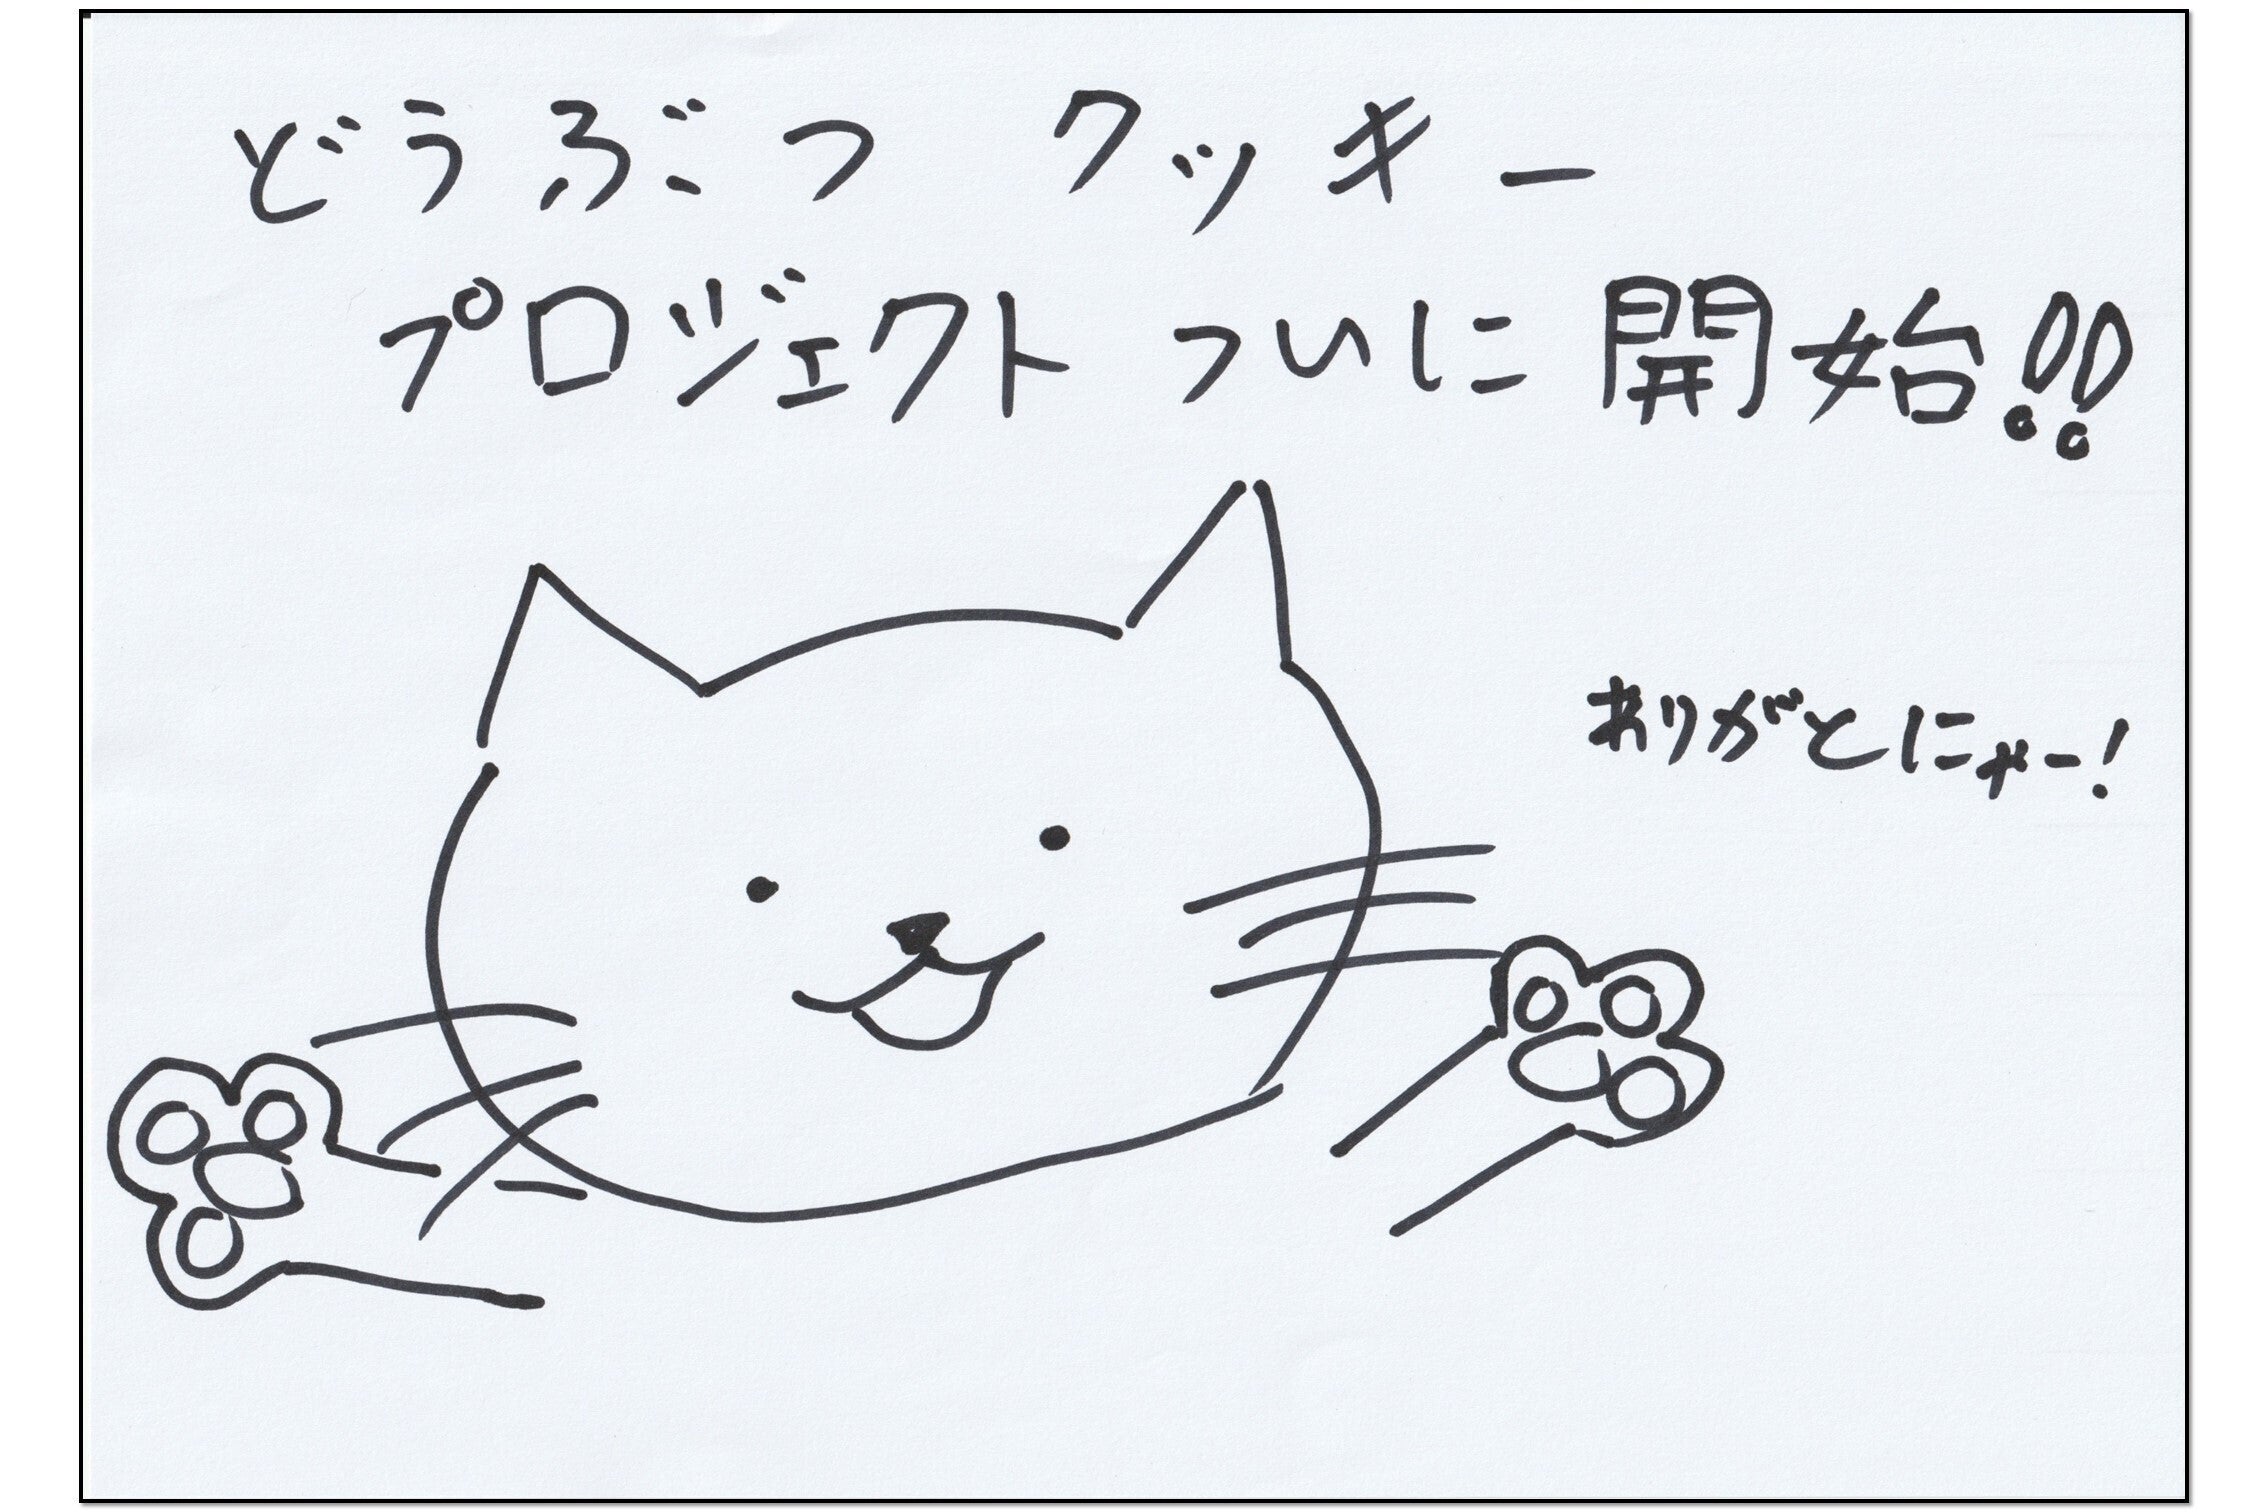 どうぶつ クッキー
プロジェクト ついに 開始!!
ありがとにゃー!